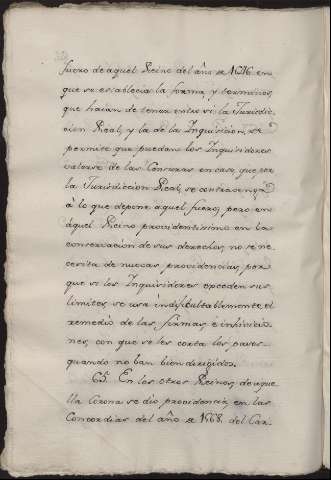 fuero de aquel Reino del año de 1646 en
que se establecia la forma, y terminos,
que havian de tener entre si la Jurisdic-
cion Real, y la de la Inquisicion, se
permite que puedan los Inquisidores
valerse de las Censuras en caso, que por
la Jurisdiccion Real, se contravenga
à lo que depone aquel fuero; pero en
aquel Reino providentissimo en la
conservacion de sus derechos, no se ne-
cesita de nuevas providencias, por
que si los Inquisidores exceden sus
limites, se usa indisficultablemente el
remedio de las firmas, e inhivicio-
nes, con que se les corta los pasos
quando no ban bien dirigidos.
65. En los otros Reinos, de aque-
lla Corona se dio providencia, en las
Concordias del año de 1568. del Car-